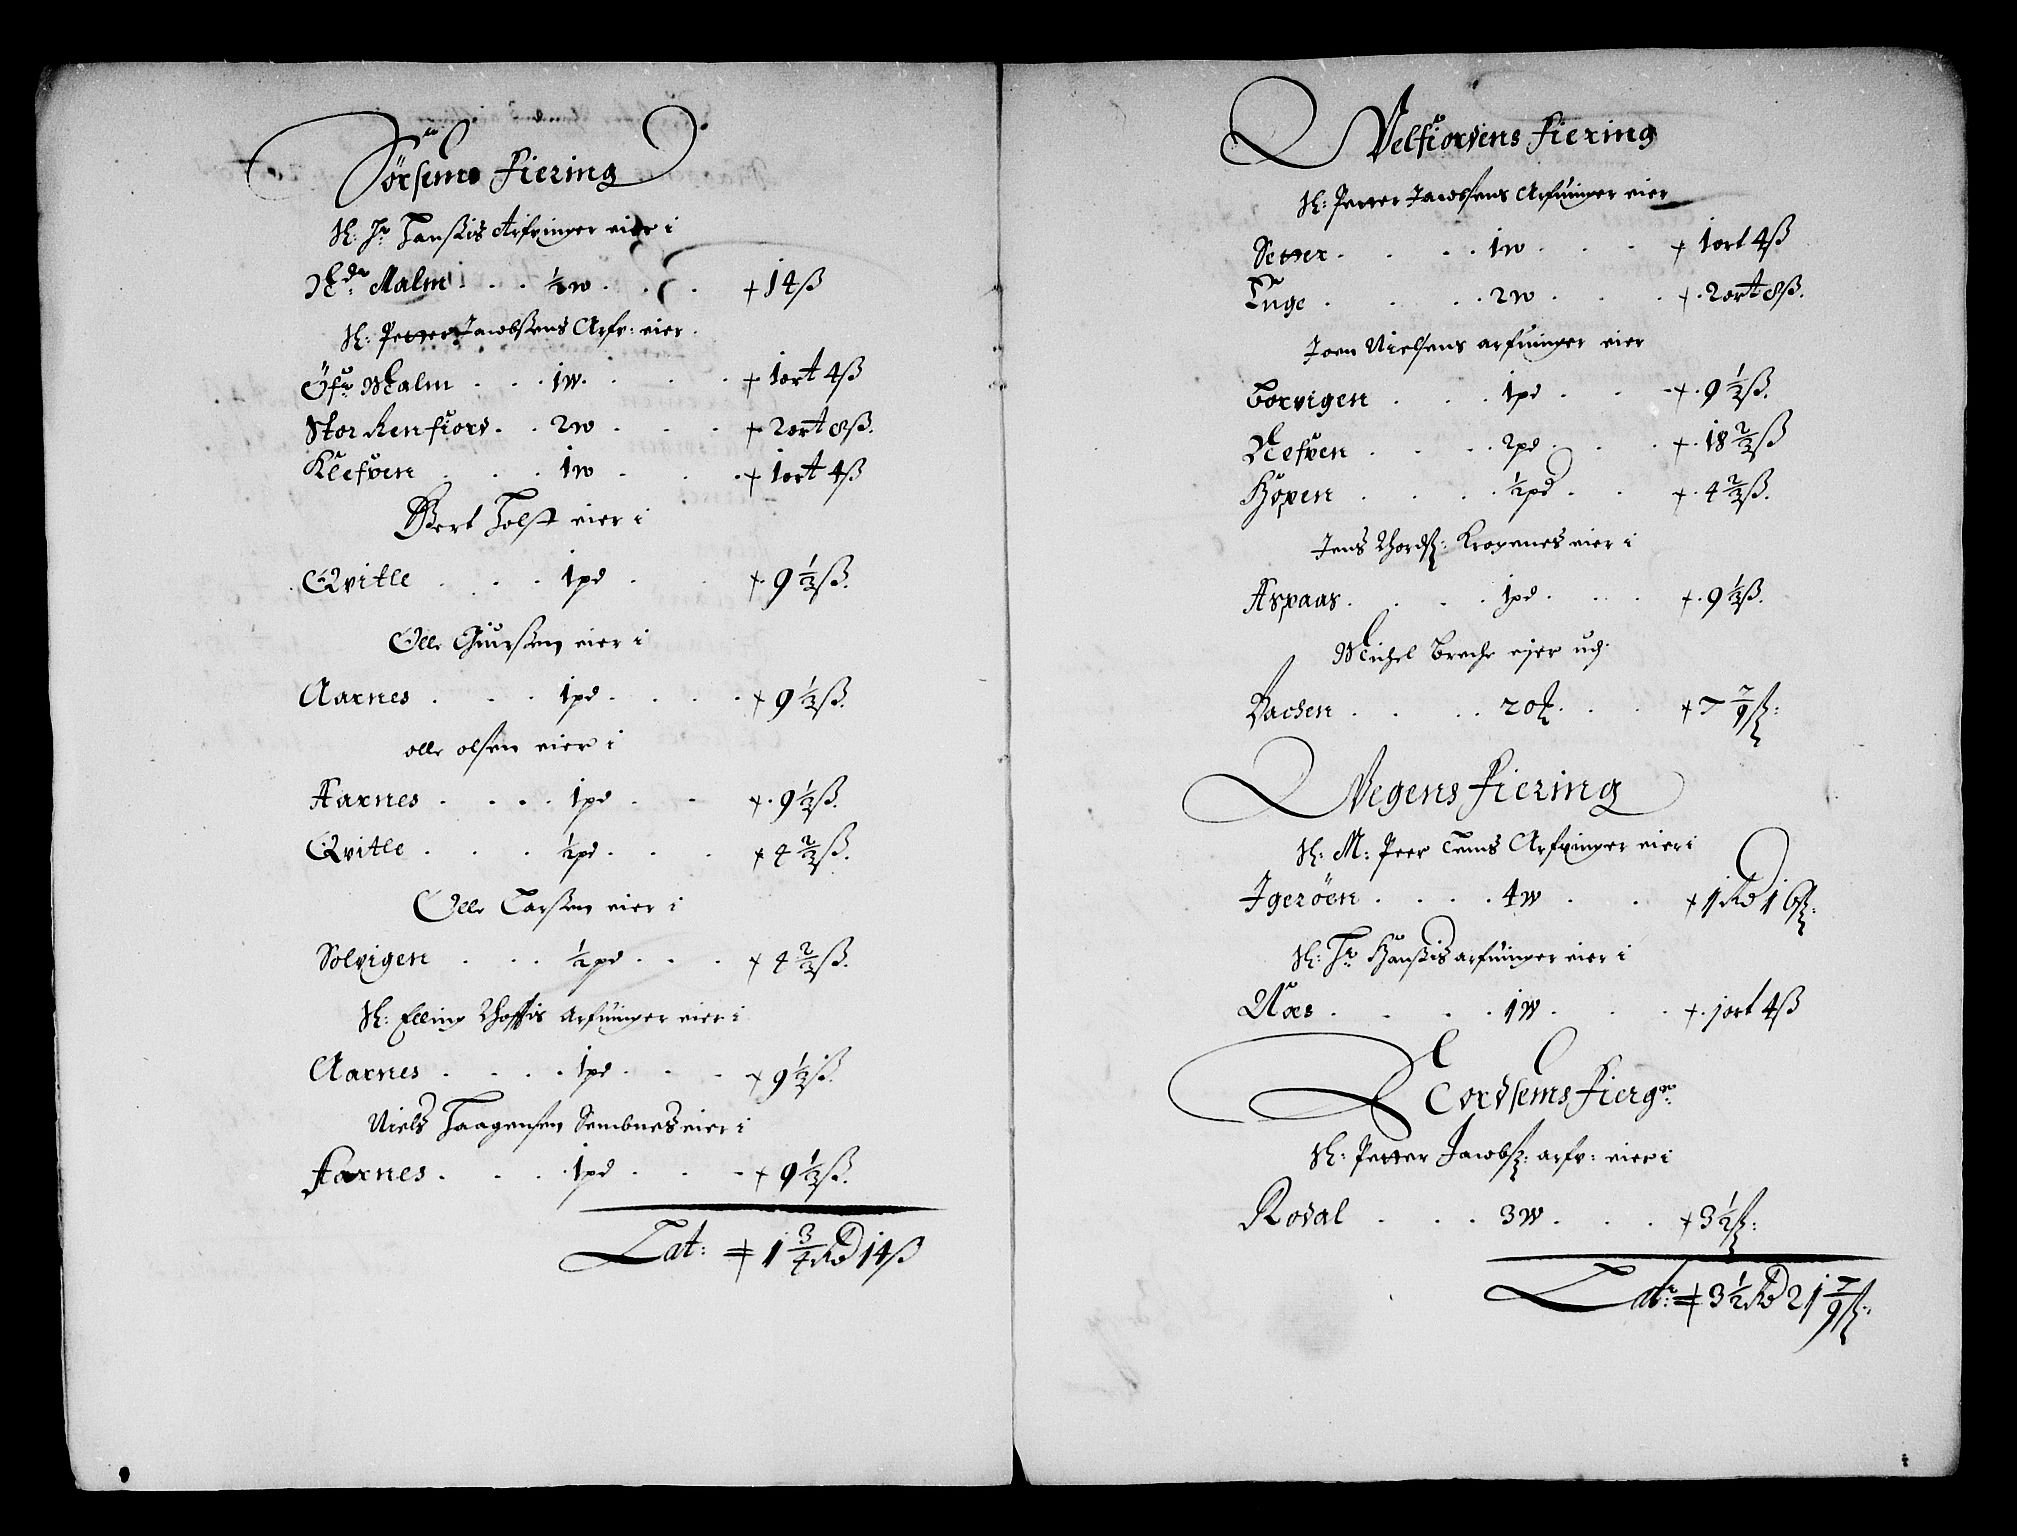 Sörsems Fiering
Sl: Hr Hanssis Arfvinger eier i
Nedr Malm . . . ½ w . . . + 14 ß
Sl: Petter Jacobsens Arfv: eier
Öfr Malm . . . 1 w . . . + 1 ort 4 ß
Stor Renfiord . . 2 w . . . + 2 ort 8 ß.
Klefven . . . 1 w . . . + 1 ort 4 ß
Bert Holst eier i
Qvitle . . . 1 pd . . + 9 ⅓ ß.
Olle Siursen eier i
Aarnes . . . 1 pd . . . . + 9 ⅓ ß.
olle olsen eier i
Aarnes . . . . 1 pd . . + 9 ⅓ ß.
Qvitle . . . ½ pd . . . + 4 ⅔ ß.
Olle Larsen eier i
Solvigen . . . ½ pd . . . + 4 ⅔ ß.
Sl: Elling arfvinger eier i
Aarnes . . . . 1 pd . . . + 9 ⅓ ß.
Niels Haagensen Sembnes eier i
Aarnes . . . 1 pd . . . + 9 ⅓ ß.
Lat: + 1 ¾ Rd 14 ß
Velfiordens Fiering
Sl: Petter Jacobsens Arfvinger eier
Setter . . . . 1 w . . . + 1 ort 4 ß
Tuge . . . . 2 w . . . + 2 ort 8 ß.
Joen Nielsens arfvinger eier
Borvigen . . . 1 pd . . . + 9 ⅓ ß.
Nefven . . . 2 pd . . . + 18 ⅔ ß
Hopen . . . . ½ pd . . + 4 ⅔ ß.
Jens eier i
Aspaas . . . . 1 pd . . . + 9 ⅓ ß.
Michel eier udj
Bachen . . . . 20 . . . + 7 7/9 ß:
Vegens Fiering
Sl: M: Peer Arfvinger eier i
Igeröen . . . . 4 w . . + 1 Rd 16 ß:
Sl: Hr Hanssis arfvinger eier i
Nes . . . . 1 w . . . + 1 ort 4 ß
Nordsems Fierg:
Sl: Petter Jacobs: arfv: eier i
Rodal . . . 3 w . . . + 3 ½ ß:
Lat: + 3 ½ Rd 21 7/9 ß: